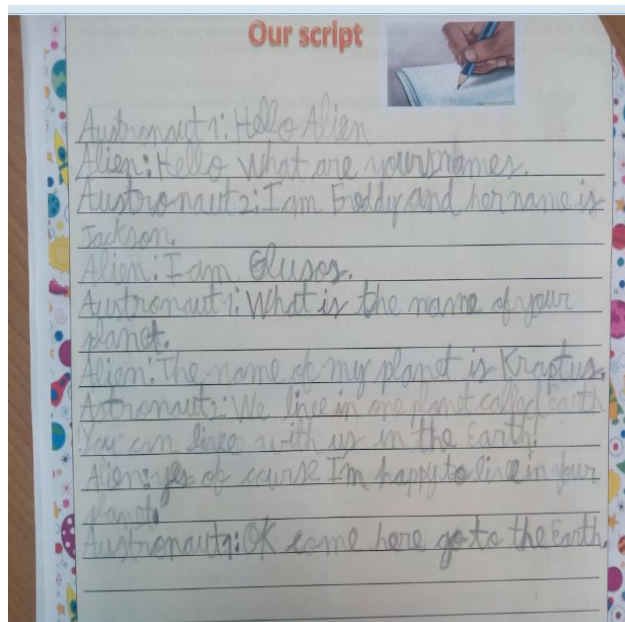 Our script
Austronaut1: Hello Alien
Alien: Hello What are yours names.
Austronaut2: I am Freddy and her name is
Jackson.
Alien: I am Glusos.
Austronaut1: What is the name of your
planet.
Alien: The name of my planet is Kraptus.
Astronaut2: We live in one planet called Earth
You can live with us in the Earth!
Alien: yes of course I'm happy to live in your
planet
Austronaut1: OK come here go to the Earth.